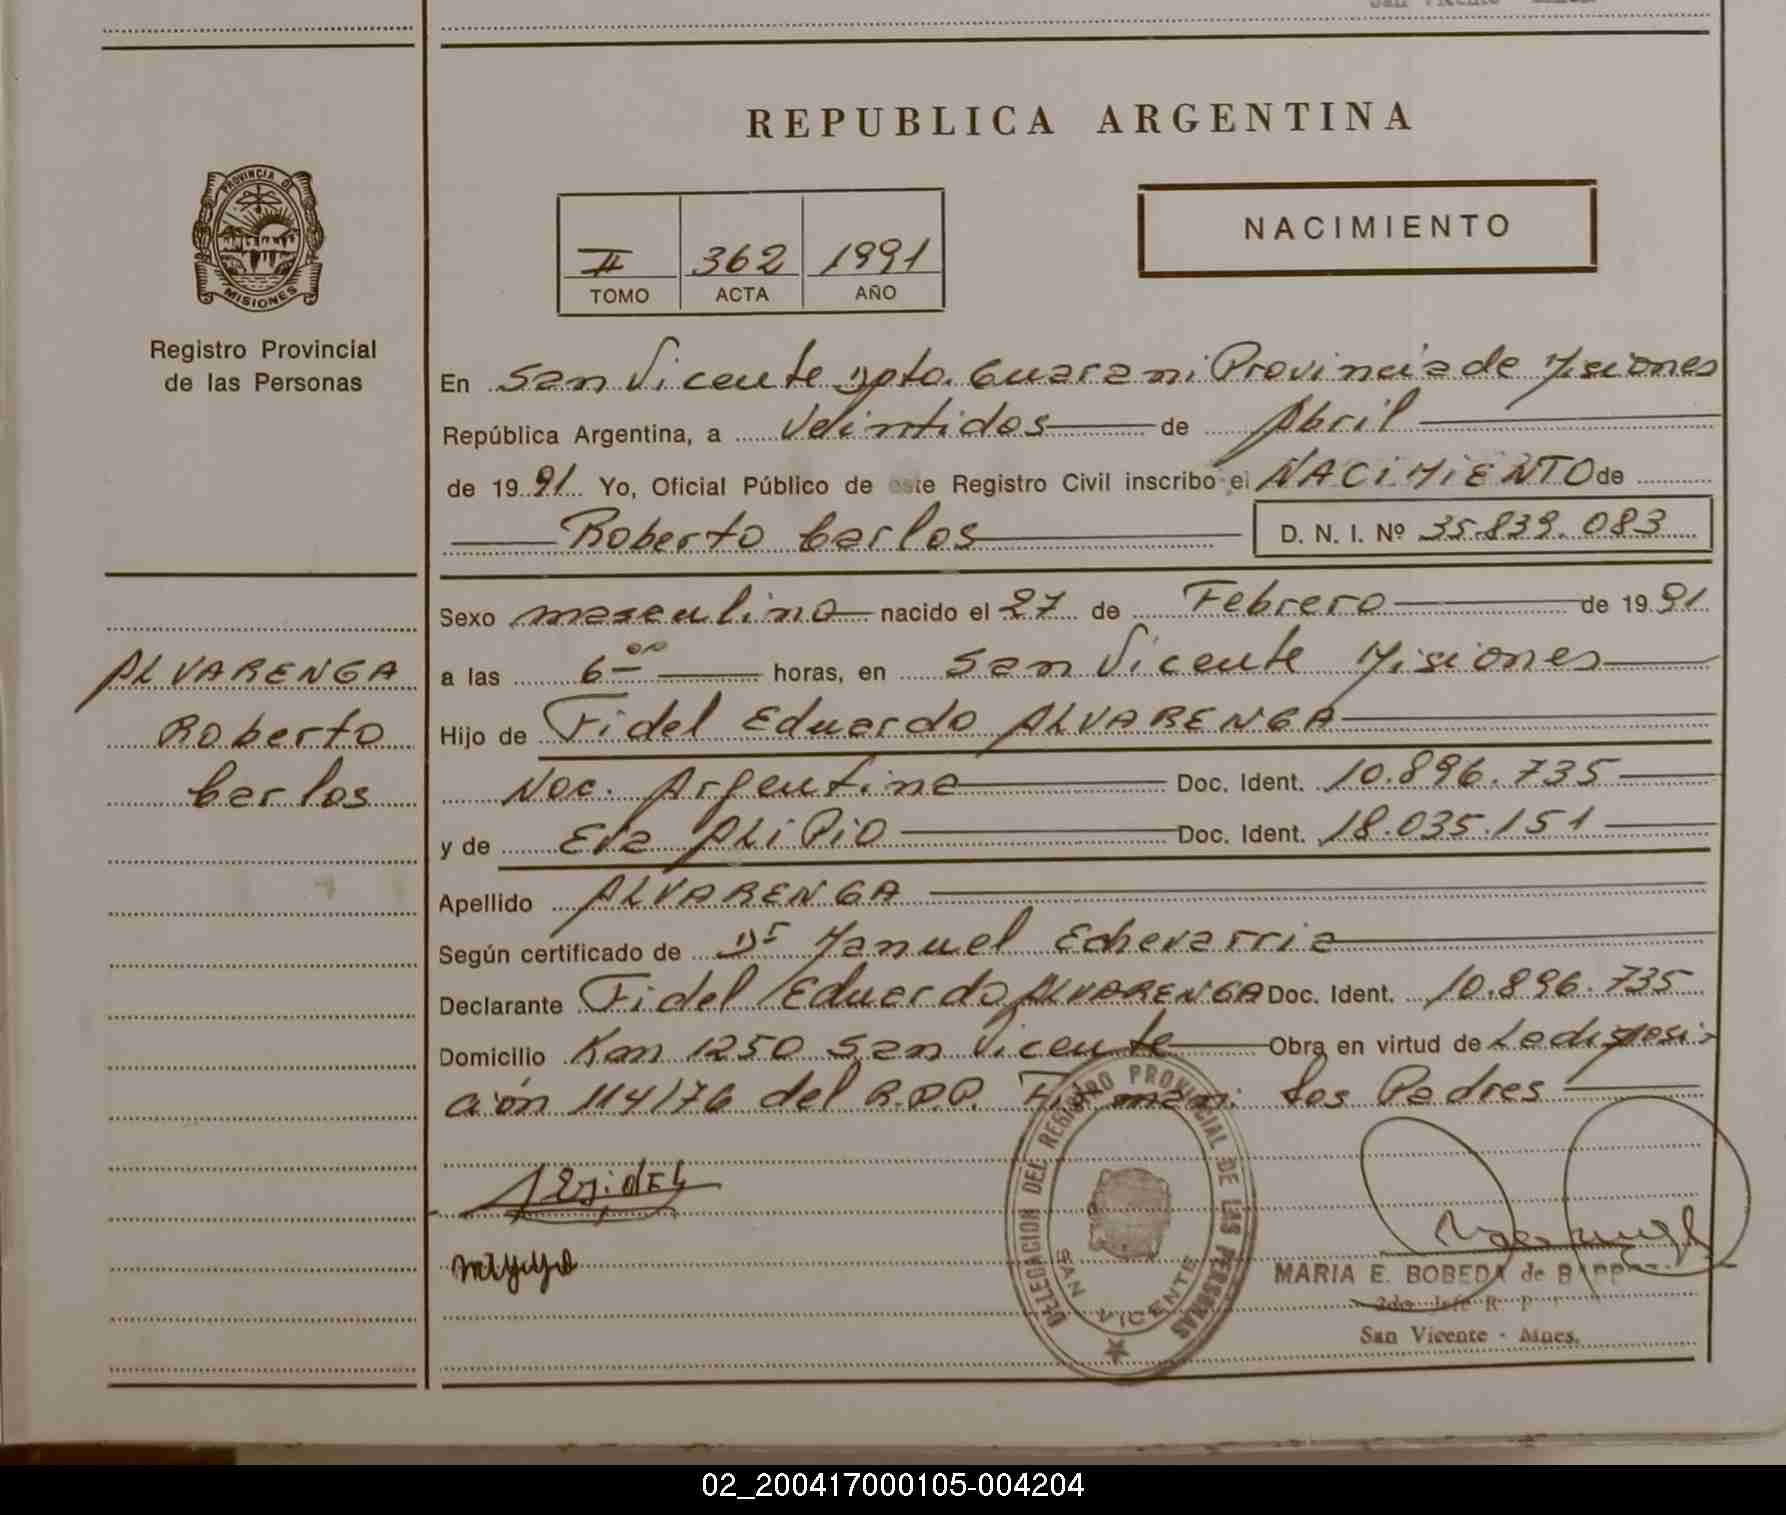 REPUBLICA ARGENTINA
PROVINCIA DE
MISIONES
Registro Provincial
de las Personas
II 362 1991
TOMO ACTA AÑO
NACIMIENTO
En San Vicente Dpto. Guarani Provincia de Misiones
República Argentina, a Veintidos de Abril
de 1991 Yo, Oficial Público de este Registro Civil inscribo el NACIMIENTO de
Roberto Carlos D. N. I. Nº 35.839.083
Sexo masculino nacido el 27 de Febrero de 1991
a las 6 00 horas, en San Vicente Misiones
ALVARENGA
Roberto
Carlos
Hijo de Fidel Eduardo ALVARENGA
Nac. Argentina Doc. Ident. 10.896.735
y de Eva ALIPIO Doc. Ident. 18.035.151
Apellido ALVARENGA
Según certificado de Dr Manuel Echevarria
Declarante Fidel Eduardo ALVARENGA Doc. Ident. 10.896.735
Domicilio Km 1250 San Vicente Obra en virtud de La disposi-
ción 114/76 del R.P.P. Firman los Padres
DELEGACION DEL REGISTRO PROVINCIAL DE LAS PERSONAS
SAN VICENTE
MARIA E. BOBEDA de
2do. Jefe R. P.
San Vicente - Mnes.
02_200417000105-004204